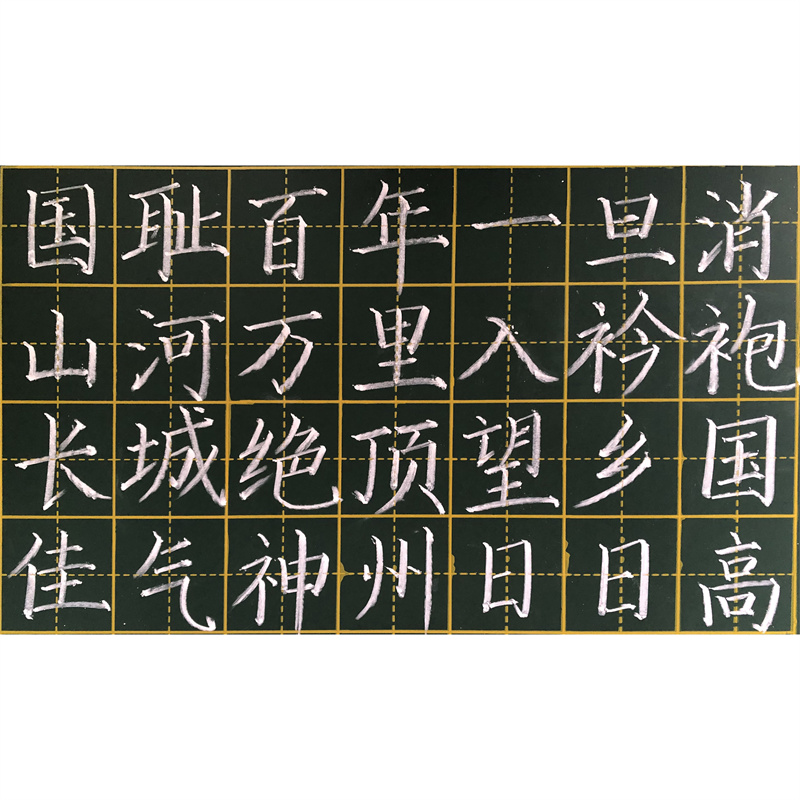 国耻百年一旦消
山河万里入衿袍
长城绝顶望乡国
佳气神州日日高